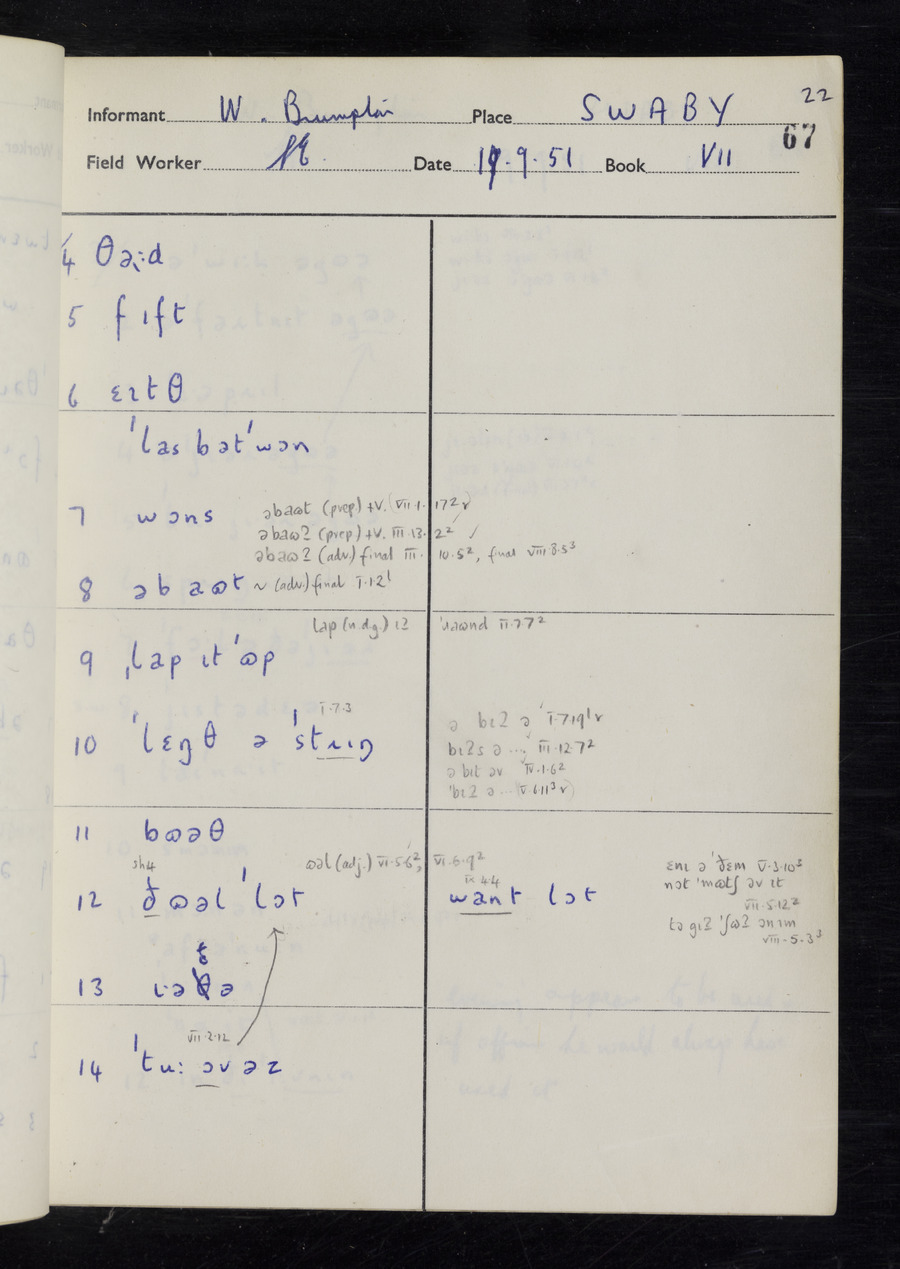 22
Informant W. Brumpton Place SWABY
67
Field Worker Date 19.9.51 Book VII
4 θə̣ːd
5 fɪft
6 ɛɪtθ
ˈlas bətˈwɔn
7 wɔns əbaʊt (prep) +V. (VII.1.17²
əbaʊʔ (prep) +V. III.13.2²
əbaʊʔ (adv.) final III.10.5², final VIII.8.5³
8 əbaʊt ~ (adv.) final I.12¹
lap (n.dg.) ɪʔ ˈɹaʊnd II.7.7²
9 ˌlap ɪt ˈʊp
I.7.3
10 ˈlɛŋθ ə ˈstɹɪŋ
ə bɪʔ ə I.7.19¹
bɪʔs ə ... III.12.7²
ə bɪt əv IV.1.6²
ˈbɪʔ ə ... V.6.11³
11 bʊəθ
sh4 ʊəl (adj.) VI.5.6², VI.6.9²
12 ðʊəl ˈlɔt
IX 4.4
want lɔt
ɛnɪ ə ˈðɛm V.3.10³
nɔt ˈmʊtʃ əv ɪt
VII.5.12²
tə gɪʔ ˈʃʊʔ ən ɪm
VIII.5.3³
13 ɪəðə
VII.2.12
14 ˈtuː ɔvəz